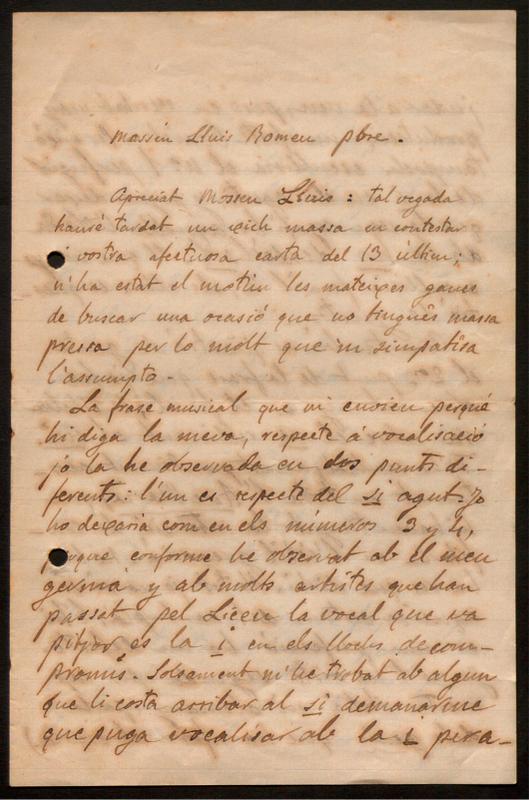 Mossèn Lluis Romeu pbre.
Apreciat Mossen Lluis: tal vegada
hauré tardat un xich massa en contestar
vostra afectuosa carta del 13 últim;
n'ha estat el motiu les mateixes ganes
de buscar una ocasió que no tingués massa
pressa per lo molt que 'm simpatisa
l'assumpto.
La frase musical que m'envieu perqué
hi diga la meva, respecte á vocalisació
jo la he observada en dos punts di-
ferents: l'un es respecte del si agut. Jo
ho deixaria com en els números 3 y 4,
perque conforme he observat ab el meu
germá y ab molts artistes que han
passat pel Liceu la vocal que va
pitjor es la i en els llochs de com-
promís. Solsament m'he trobat ab algun
que li costa arribar al si demanarme
que puga vocalisar ab la i pera-